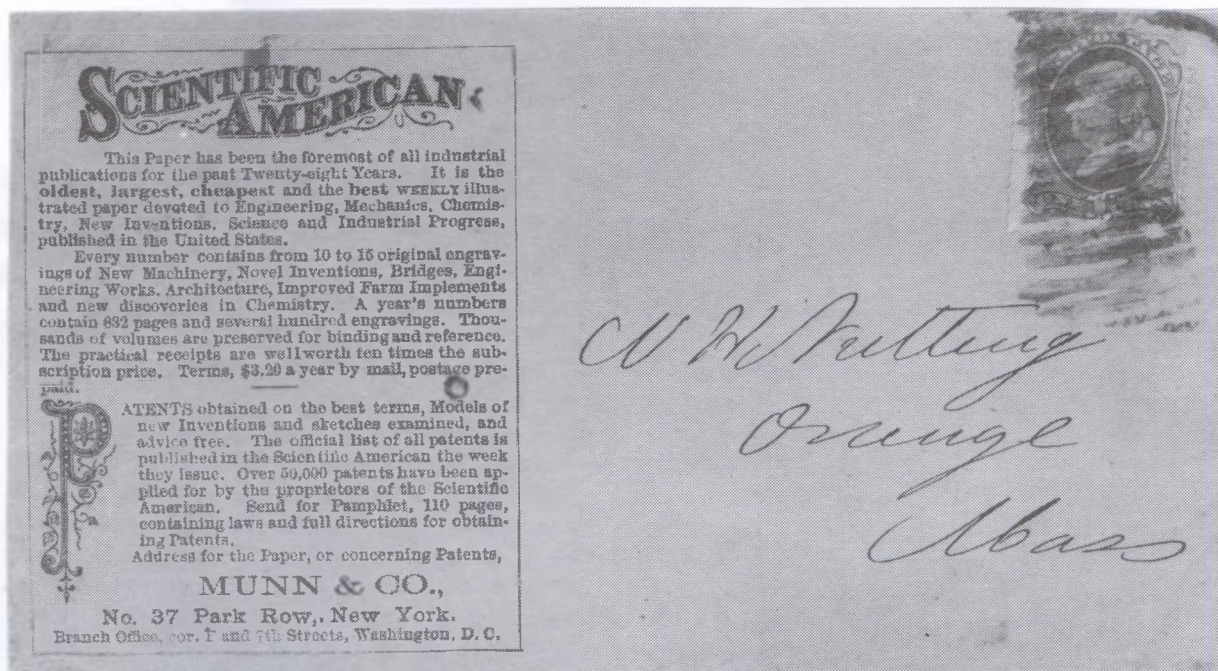 SCIENTIFIC
AMERICAN
This Paper has been the foremost of all industrial
publications for the past Twenty-eight Years. It is the
oldest, largest, cheapest and the best WEEKLY illus-
trated paper devoted to Engineering, Mechanics, Chemis-
try, New Inventions, Science and Industrial Progress,
published in the United States.
Every number contains from 10 to 15 original engrav-
ings of New Machinery, Novel Inventions, Bridges, Engi-
neering Works, Architecture, Improved Farm Implements
and new discoveries in Chemistry. A year's numbers
contain 832 pages and several hundred engravings. Thou-
sands of volumes are preserved for binding and reference.
The practical receipts are well worth ten times the sub-
scription price. Terms, $3.20 a year by mail, postage pre-
paid.
PATENTS obtained on the best terms, Models of
new Inventions and sketches examined, and
advice free. The official list of all patents is
published in the Scientific American the week
they issue. Over 50,000 patents have been ap-
plied for by the proprietors of the Scientific
American. Send for Pamphlet, 110 pages,
containing laws and full directions for obtain-
ing Patents.
Address for the Paper, or concerning Patents,
MUNN & CO.,
No. 37 Park Row, New York.
Branch Office, cor. F and 7th Streets, Washington, D. C.
N H Nutting
Orange
Mass